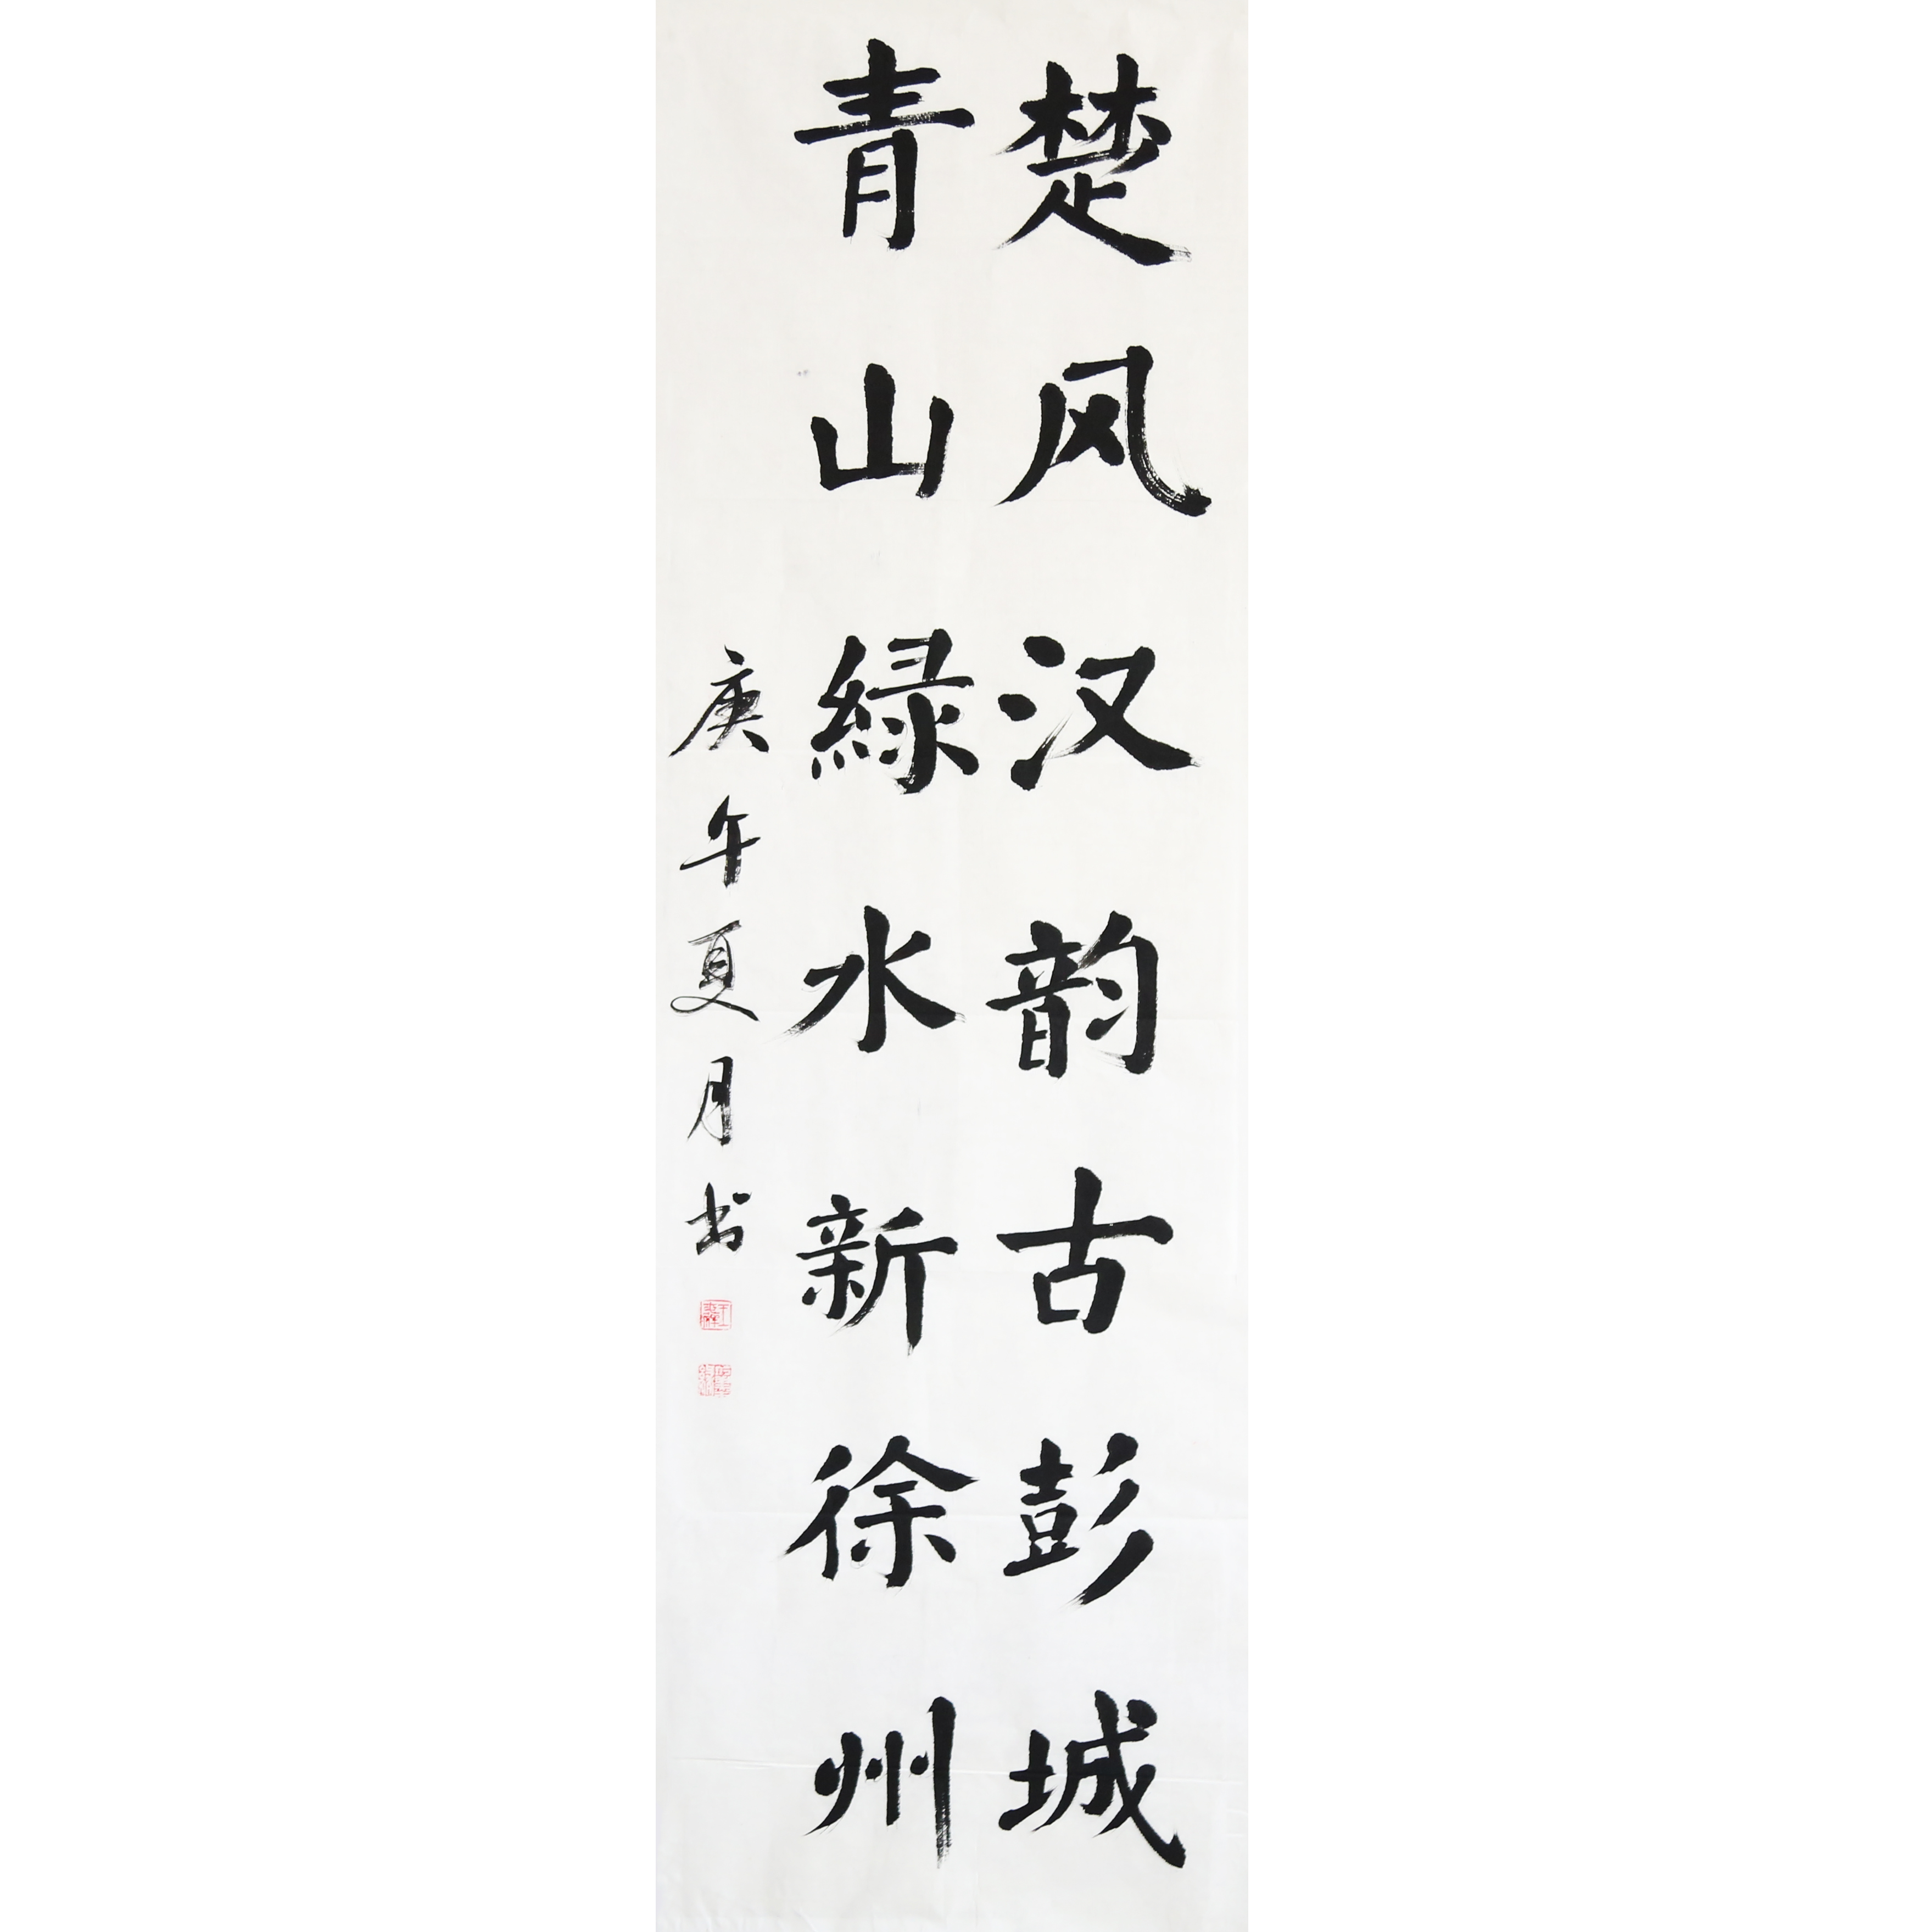 楚风汉韵古彭城
青山緑水新徐州
庚午夏月书